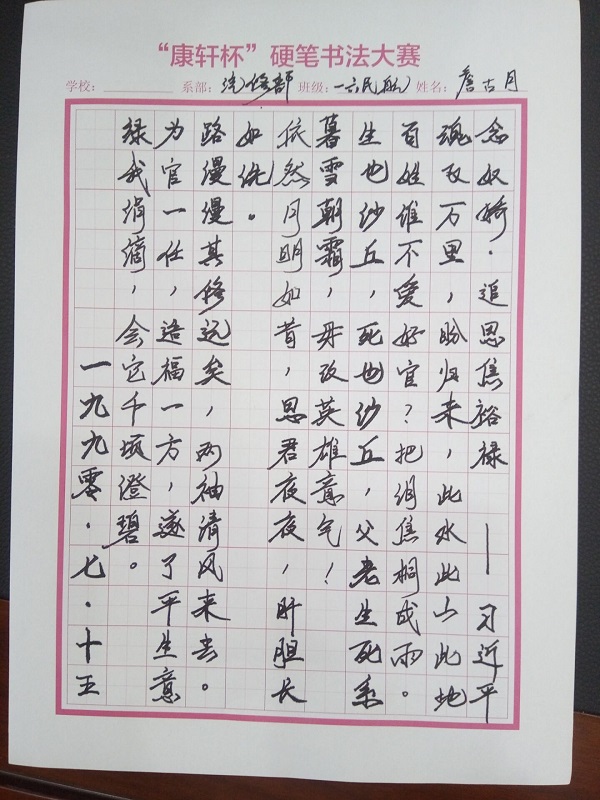 “康轩杯”硬笔书法大赛
学校： 系部：汽修部 班级：一六民航1 姓名：詹古月
念奴娇·追思焦裕禄——习近平
魂飞万里，盼归来，此水此山此地
百姓谁不爱好官？把泪焦桐成雨。
生也沙丘，死也沙丘，父老生死系
暮雪朝霜，毋改英雄意气！
依然月明如昔，思君夜夜，肝胆长
如洗。
路漫漫其修远矣，两袖清风来去。
为官一任，造福一方，遂了平生意
绿我涓滴，会它千顷澄碧。
一九九零·七·十五